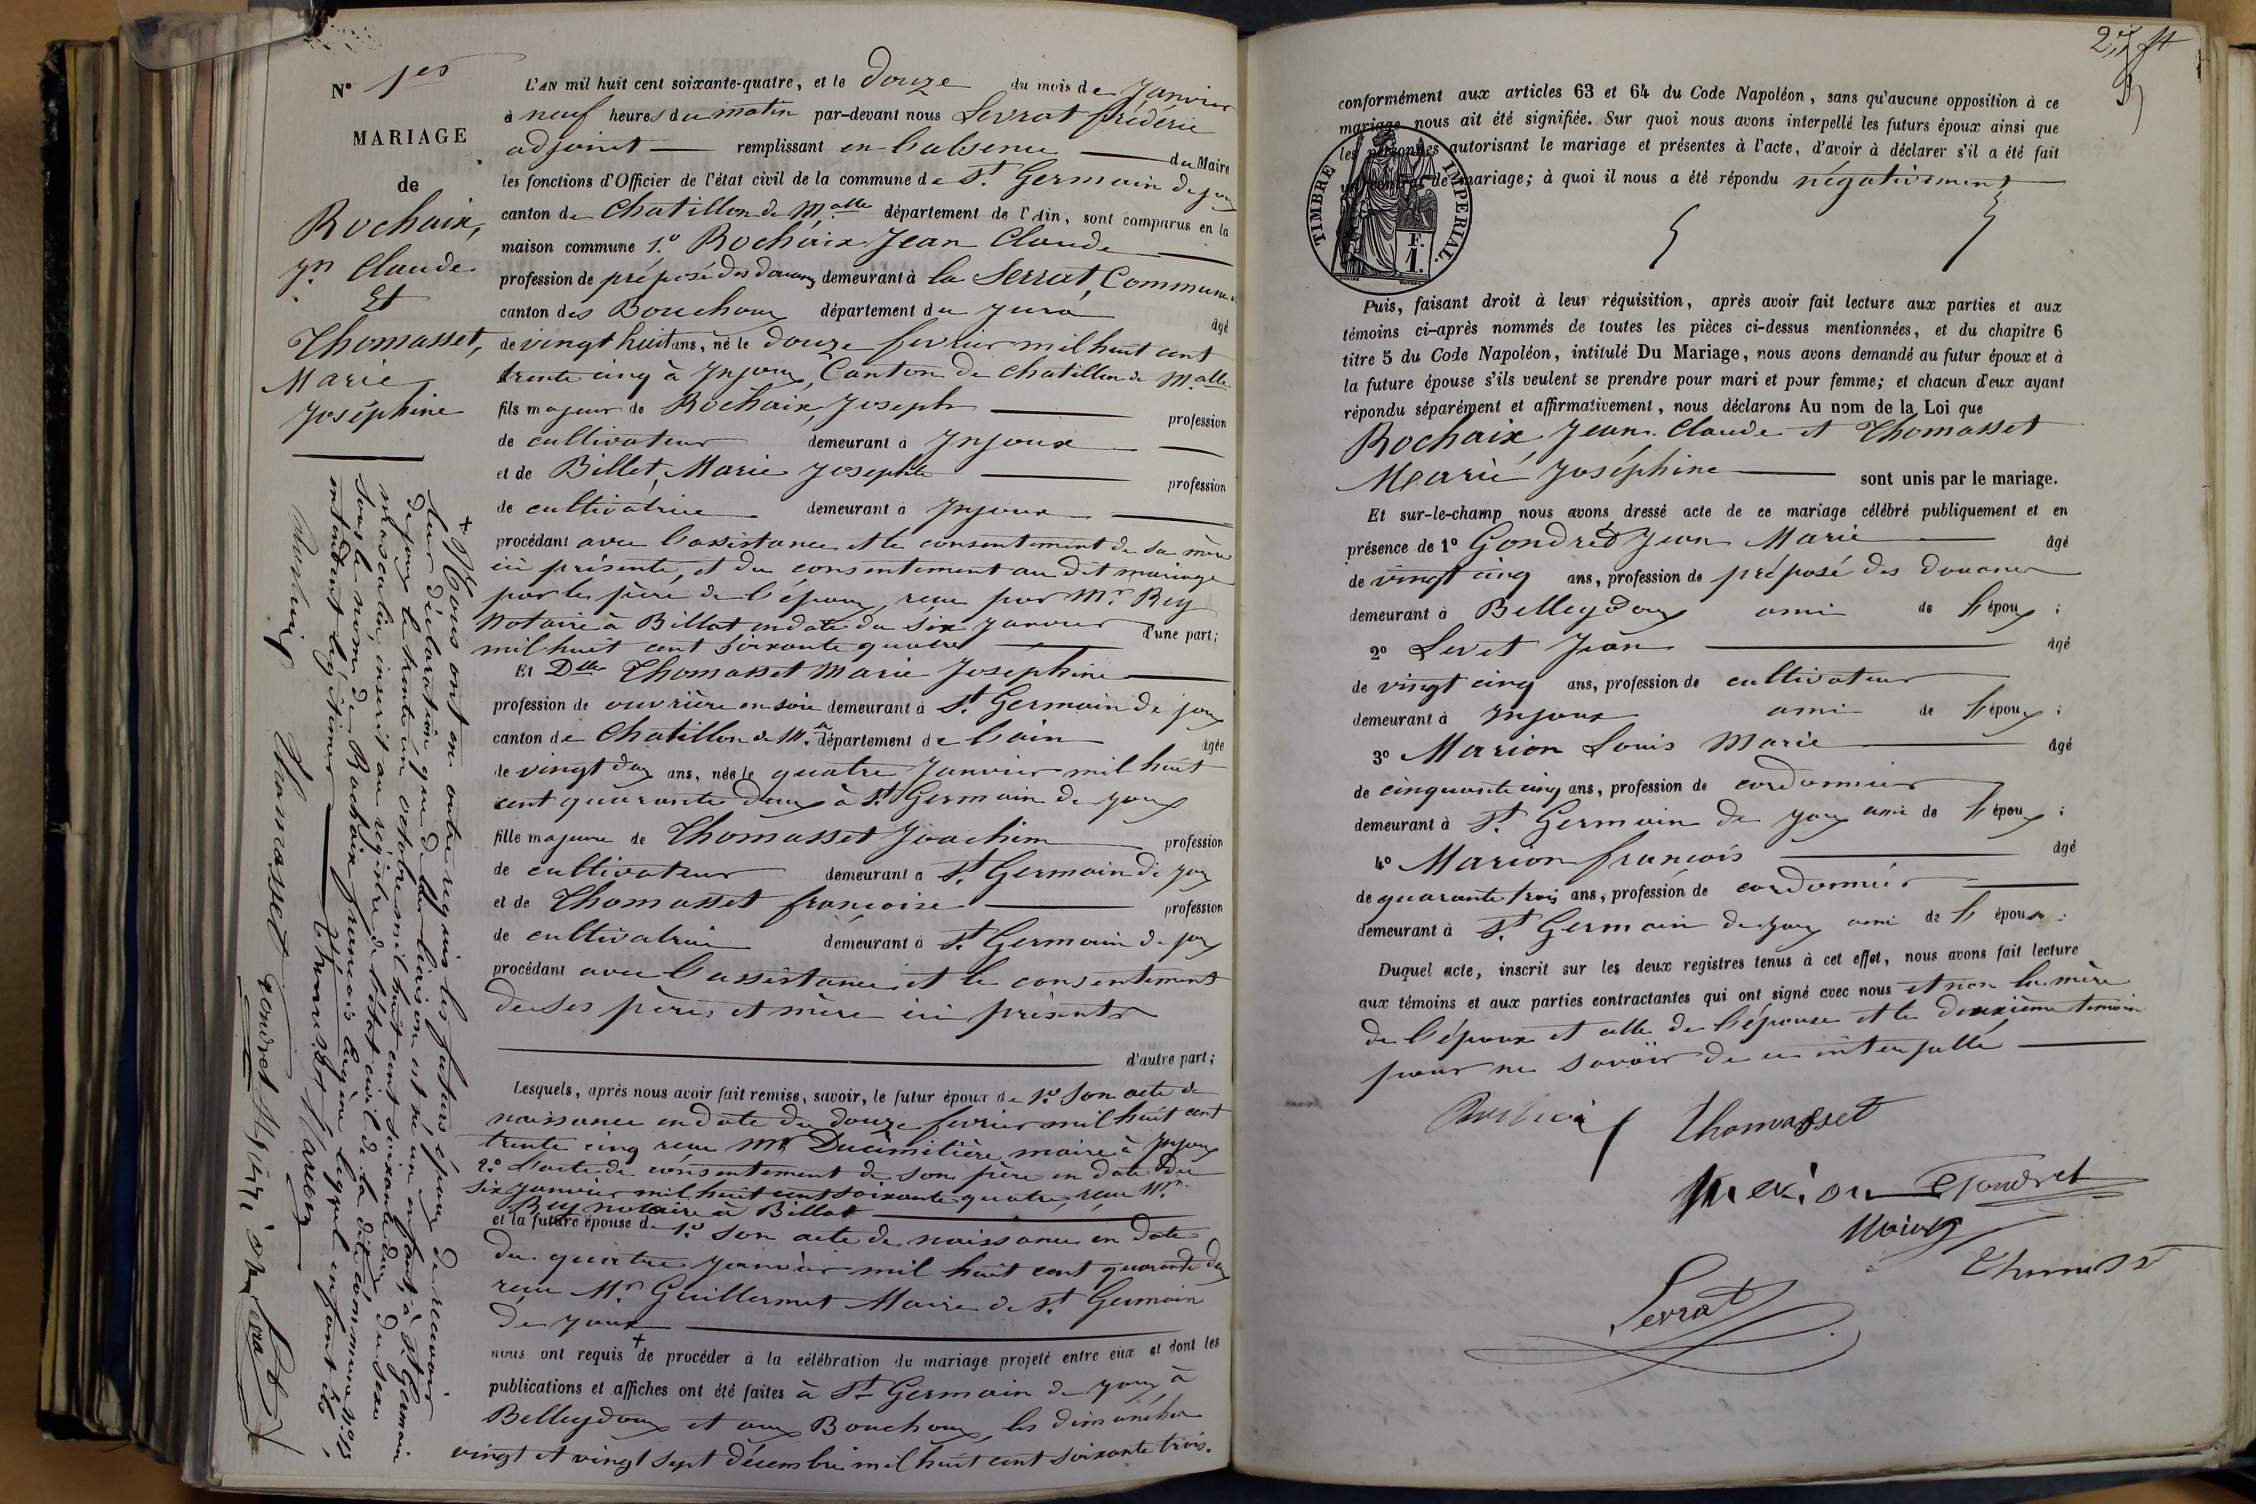 N° 1er
MARIAGE
de
Rochaix,
Jn Claude
Et
Thomasset,
Marie
Joséphine
L'AN mil huit cent soixante-quatre, et le douze du mois de Janvier
à neuf heures du matin par-devant nous Levrat frédéric
adjoint remplissant en l'absence du Maire
les fonctions d'Officier de l'état civil de la commune de St. Germain de joux
canton de Chatillon de M.alle département de l'Ain, sont comparus en la
maison commune 1.° Rochaix Jean Claude
profession de préposé des douanes demeurant à la Serrat, Commune
canton des Bouchoux département du Jura âgé
de vingt huit ans, né le douze fevrier mil huit cent
trente cinq à Injoux, Canton de Chatillon de M.alle
fils majeur de Rochaix, Joseph profession
de cultivateur demeurant à Injoux
et de Billet, Marie Josephte profession
de cultivatrice demeurant à Injoux
procédant avec l'assistance et le consentement de sa mère
ici présente, et du consentement au dit mariage
par le père de l'époux, reçu par Mr. Rey
Notaire à Billiat en date du six Janvier d'une part;
mil huit cent soixante quatre
Et Dlle Thomasset Marie Joséphine
profession de ouvrière en soie demeurant à St. Germain de joux
canton de Chatillon de M. département de l'ain âgée
de vingt deux ans, née le quatre Janvier mil huit
cent quarante deux à St. Germain de joux
fille majeure de Thomasset Joachim profession
de cultivateur demeurant à St. Germain de joux
et de Thomasset françoise profession
de cultivatrice demeurant à St. Germain de joux
procédant avec l'assistance et le consentement
de ses père et mère ici présents
d'autre part;
Lesquels, après nous avoir fait remise, savoir, le futur époux de 1.° son acte de
naissance en date du douze fevrier mil huit cent
trente cinq reçu Mr Ducimitière maire à Injoux
2.° l'acte de consentement de son père en date du
six janvier mil huit cent soixante quatre, reçu Mr.
Rey notaire à Billiat
et la future épouse de 1.° son acte de naissance en date
du quatre janvier mil huit cent quarante deux
reçu Mr. Guillermet Maire de St. Germain
de joux
nous ont requis + de procéder à la célébration du mariage projeté entre eux et dont les
publications et affiches ont été faites à St. Germain de joux à
Belleydoux et aux Bouchoux, les dimanches
vingt et vingt sept décembre mil huit cent soixante trois.
+ Nous ont en outre requis les futurs époux de recevoir
leur déclaration que de leur liaison est né un enfant, à St. Germain
de joux le trente un octobre mil huit cent soixante deux du sexe
masculin, inscrit au régistre de l'état civil de la dite commune n°
sous le nom de Rochaix françois Eugène lequel enfant ils
entendent légitimer
Thomasset Marion
Thomasset gondret
Levrat
conformément aux articles 63 et 64 du Code Napoléon, sans qu'aucune opposition à ce
mariage nous ait été signifiée. Sur quoi nous avons interpellé les futurs époux ainsi que
les personnes autorisant le mariage et présentes à l'acte, d'avoir à déclarer s'il a été fait
un contrat de mariage; à quoi il nous a été répondu négativement
TIMBRE IMPERIAL
F.
1.
Puis, faisant droit à leur réquisition, après avoir fait lecture aux parties et aux
témoins ci-après nommés de toutes les pièces ci-dessus mentionnées, et du chapitre 6
titre 5 du Code Napoléon, intitulé Du Mariage, nous avons demandé au futur époux et à
la future épouse s'ils veulent se prendre pour mari et pour femme; et chacun d'eux ayant
répondu séparément et affirmativement, nous déclarons Au nom de la Loi que
Rochaix, Jean Claude et Thomasset
Marie Joséphine sont unis par le mariage.
Et sur-le-champ nous avons dressé acte de ce mariage célébré publiquement et en
présence de 1° Gondret Jean Marie âgé
de vingt cinq ans, profession de préposé des douanes
demeurant à Belleydoux ami de l'époux;
2° Levet Jean âgé
de vingt cinq ans, profession de cultivateur
demeurant à Injoux ami de l'époux;
3° Marion Louis Marie âgé
de cinquante cinq ans, profession de cordonnier
demeurant à St. Germain de joux ami de l'époux;
4° Marion françois âgé
de quarante trois ans, profession de cordonnier
demeurant à St. Germain de joux ami de l'époux;
Duquel acte, inscrit sur les deux registres tenus à cet effet, nous avons fait lecture
aux témoins et aux parties contractantes qui ont signé avec nous et non la mère
de l'époux et celle de l'épouse et le deuxième témoin
pour ne savoir de ce interpellé
Thomasset
Marion Gondret
Marion
Thomasset
Levrat